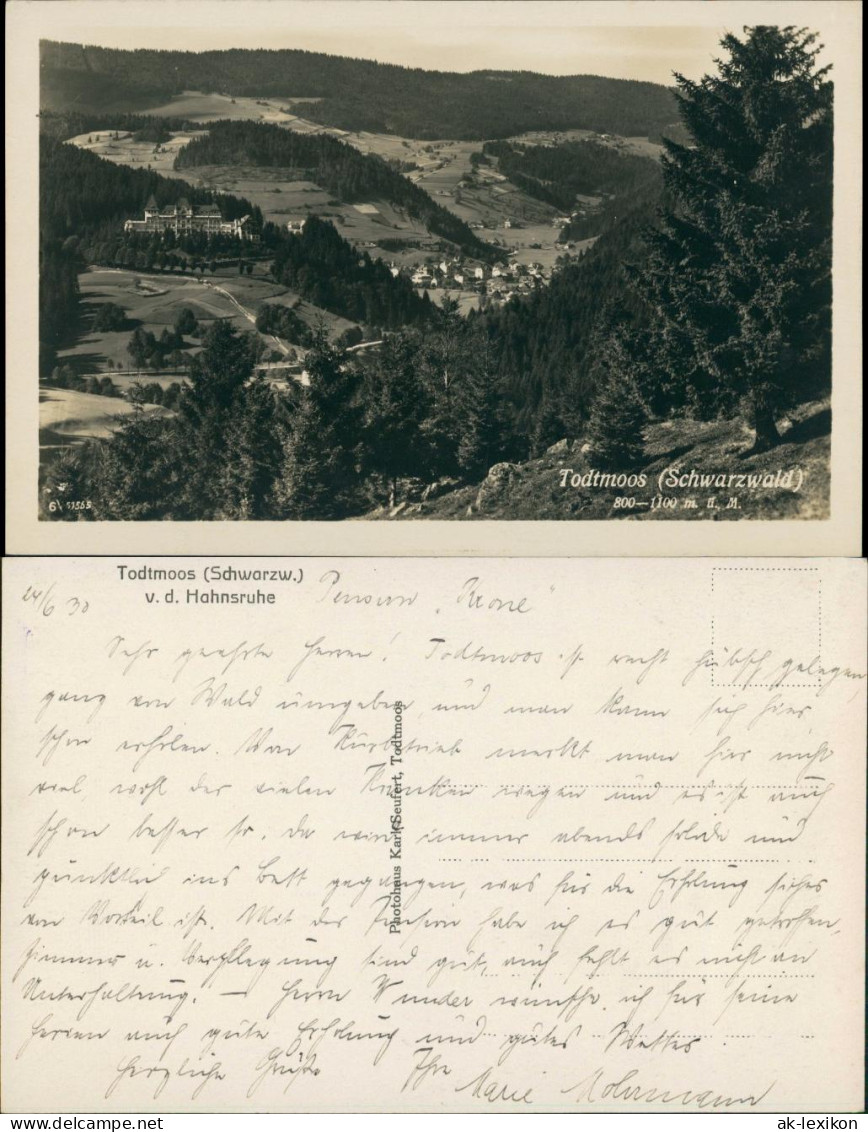 Todtmoos (Schwarzwald)
800—1100 m. ü. M.
6\ 51565
Todtmoos (Schwarzw.)
v. d. Hahnsruhe
24/6 30
Pension „Krone“
Sehr geehrte Herren! Todtmoos ist recht hübsch gelegen,
ganz von Wald umgeben und man kann sich hier
schon erholen. Von Kurbetrieb merkt man hier nicht
viel wohl der vielen Kranken wegen und es ist auch
schon besser so. Da wird immer abends solide und
pünktlich ins Bett gegangen, was für die Erholung sicher
von Vorteil ist. Mit der Pension habe ich es gut getroffen,
Zimmer u. Verpflegung sind gut, auch fehlt es nicht an
Unterhaltung. — Herrn Wunder wünsche ich für seine
Ferien auch gute Erholung und gutes Wetter.
Herzliche Grüße Ihre
Marie Mohrmann
Photohaus Karl Seufert, Todtmoos
ak-lexikon